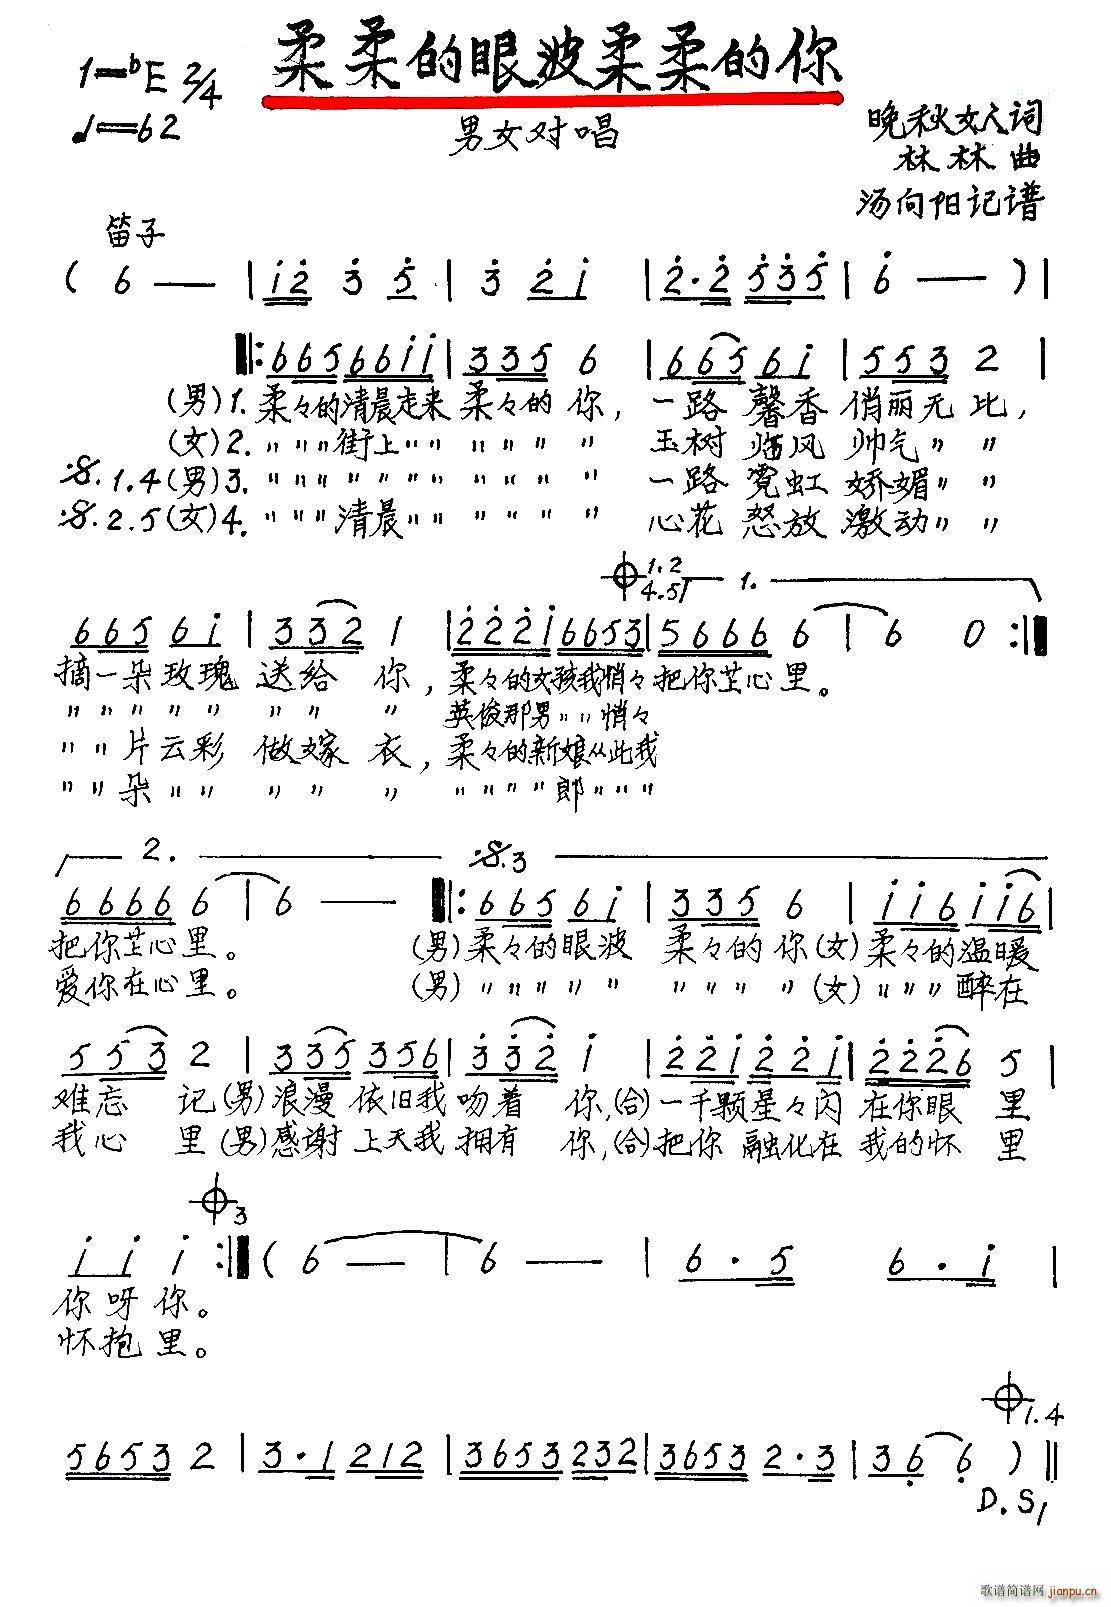 柔柔的眼波柔柔的你
1=♭E 2/4
♩=62
男女对唱
晚秋女人词
林林曲
汤向阳记谱
笛子
( 6 — | i̇2̇ 3̇ 5̇ | 3̇ 2̇i̇ | 2̇·2̇ 5̇3̇5̇ | 6̇ — ) |
‖: 665 66i̇i̇ | 335 6 | 665 6i̇ | 553 2 |
(男)1. 柔々的清晨走来 柔々的 你, 一路 馨香 俏丽无比,
(女)2. 〃〃〃街上〃〃 〃〃〃 〃 玉树 临风 帅气〃〃
𝄋.1.4(男)3. 〃〃〃〃〃〃〃 〃〃〃 〃 一路 霓虹 娇媚〃〃
𝄋.2.5(女)4. 〃〃〃清晨〃〃 〃〃〃 〃 心花 怒放 激动〃〃
𝄌1.2 4.5 1.
665 6i̇ | 332 1 | 2̇2̇2̇i̇ 6653 | 5666 6 | 6 0 :‖
摘一朵玫瑰 送给 你, 柔々的女孩我悄々把你芷心里。
〃〃〃〃〃 〃〃 〃 英俊那男〃〃悄々
〃〃片云彩 做嫁 衣, 柔々的新娘从此我
〃〃朵〃〃 〃〃 〃 〃〃〃〃郎〃〃〃
2. 𝄋.3
6666 6 | 6 — ‖: 665 6i̇ | 335 6 | i̇i̇6 i̇i̇6 |
把你芷心里。 (男)柔々的眼波 柔々的 你(女)柔々的温暖
爱你在心里。 (男)〃〃〃〃〃 〃〃〃 〃(女)〃〃〃醉在
553 2 | 335 356 | 3̇3̇2̇ i̇ | 2̇2̇i̇ 2̇2̇i̇ | 2̇2̇2̇6 5 |
难忘 记(男)浪漫 依旧我 吻着 你,(合)一千颗星々闪 在你眼 里
我心 里(男)感谢 上天我 拥有 你,(合)把你 融化在 我的怀 里
𝄌3
i̇ i̇ i̇ :‖ ( 6 — | 6 — | 6·5 6·i̇ |
你呀你。
怀抱里。
𝄌1.4
5653 2 | 3·1 212 | 3653 232 | 3653 2·3 | 36̣ 6̣ ) ‖
D.S/
歌谱简谱网 jianpu.cn